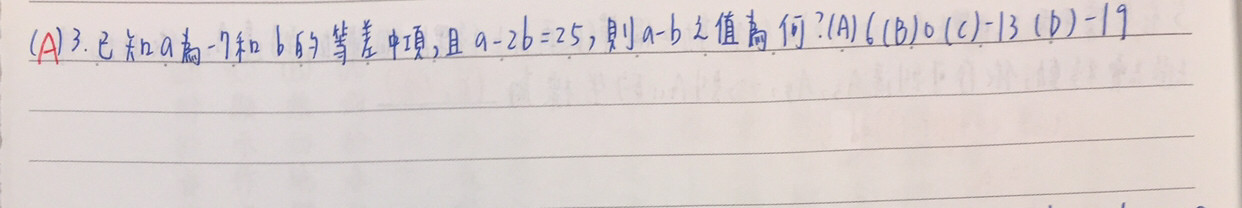 (A)3.已知a為-7和b的等差中項,且a-2b=25,則a-b之值為何?(A)6(B)0(C)-13(D)-19